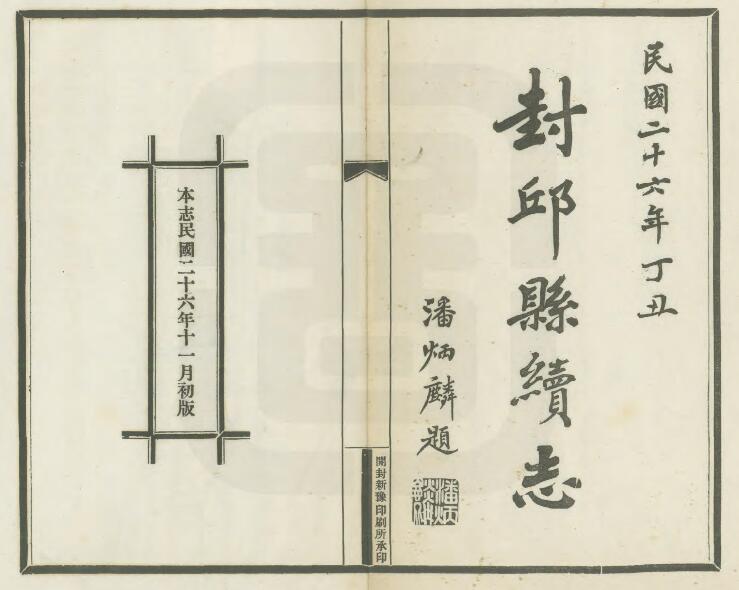 民國二十六年丁丑
封邱縣續志
潘炳麟題
開封新豫印刷所承印
本志民國二十六年十一月初版